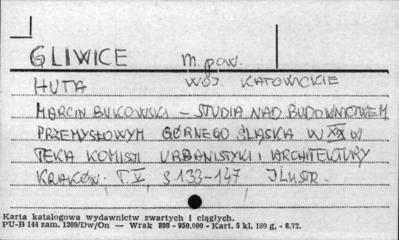 GLIWICE m. pow.
HUTA WOJ. KATOWICKIE
MARCIN BUKOWSKI – STUDIA NAD BUDOWNICTWEM
PRZEMYSŁOWYM GÓRNEGO ŚLĄSKA W XIX W
TEKA KOMISJI URBANISTYKI I ARCHITEKTURY
KRAKÓW. T. V, S 133-147 ILUSTR.
Karta katalogowa wydawnictw zwartych i ciągłych.
PU-B 144 zam. 1209/Dw/On — Wrak 898 - 950.000 - Kart. 5 kl. 180 g. - 8.72.